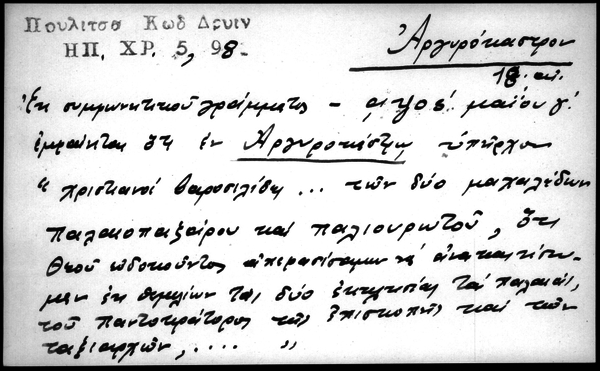 Πουλιτσα Κωδ Δρυιν
ΗΠ. ΧΡ. 5, 98.
Ἀργυρόκαστρον
18. αἰ.
Ἐκ συμφωνητικοῦ γράμματος – αψοε΄ μαΐου γ΄.
ἐμφαίνεται ὅτι ἐν Ἀργυροκάστρῳ ὑπῆρχον
“ χριστιανοί βαροσιλίδες ... τῶν δύο μαχαλάδων
Παλαιοπαζάρου καί παλιουρωτοῦ, ὅτι
Θεοῦ εὐδοκοῦντος ἀπεφασίσαμεν νά ἀνακαινίσω-
μεν ἐκ θεμελίων ταῖς δύο ἐκκλησίαις ταῖς παλαιαῖς,
τοῦ Παντοκράτορος τῆς Ἐπισκοπῆς καί τῶν
ταξιαρχῶν, .... ”